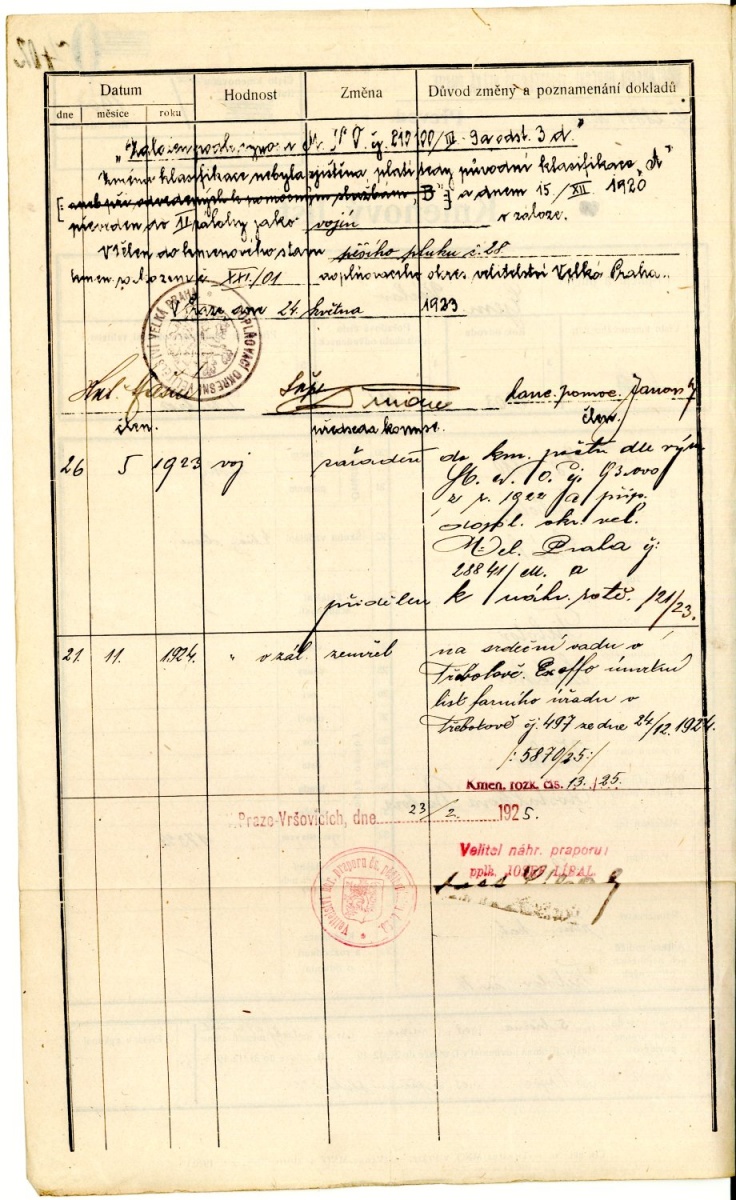 402
Datum Hodnost Změna Důvod změny a poznamenání dokladů
dne měsíce roku
"Založen podle výnosu M. N. O. čj. 210 /III - 9a odst. 3 d."
Změna klasifikace nebyla zjištěna, platí tedy původní klasifikace "A"
[aneb pův. odvedených k pomocným službám "B"] a dnem 15/XII 1920
převeden do II zálohy jako vojín v záloze.
Vtělen do kmenového stavu pěšího pluku č. 28
kmen. pořozemí XXI./01 doplňovacího okres. velitelství Velká Praha.
V Praze dne 24. května 1923
DOPLŇOVACÍ OKRESNÍ VELITELSTVÍ VELKÁ PRAHA
člen. předseda komise. člen.
26 5 1923 voj zařaděn do km. počtu dle výn.
z r. 1922 a příp.
dopl. okr. vel.
Vel. Praha čj.
28841/ a
přidělen k náhr. rotě. /21/23.
21. 11. 1924. " v zál. zemřel na srdeční vadu v
Třebotově. Ex offo úmrtní
list farního úřadu v
Třebotově čj. 497 ze dne 24/12. 1924.
/:5870/25:/
Kmen. rozk. čís. 13./25.
V Praze-Vršovicích, dne 23/2. 1925.
Velitel náhr. praporu:
pplk. JOSEF LÍBAL